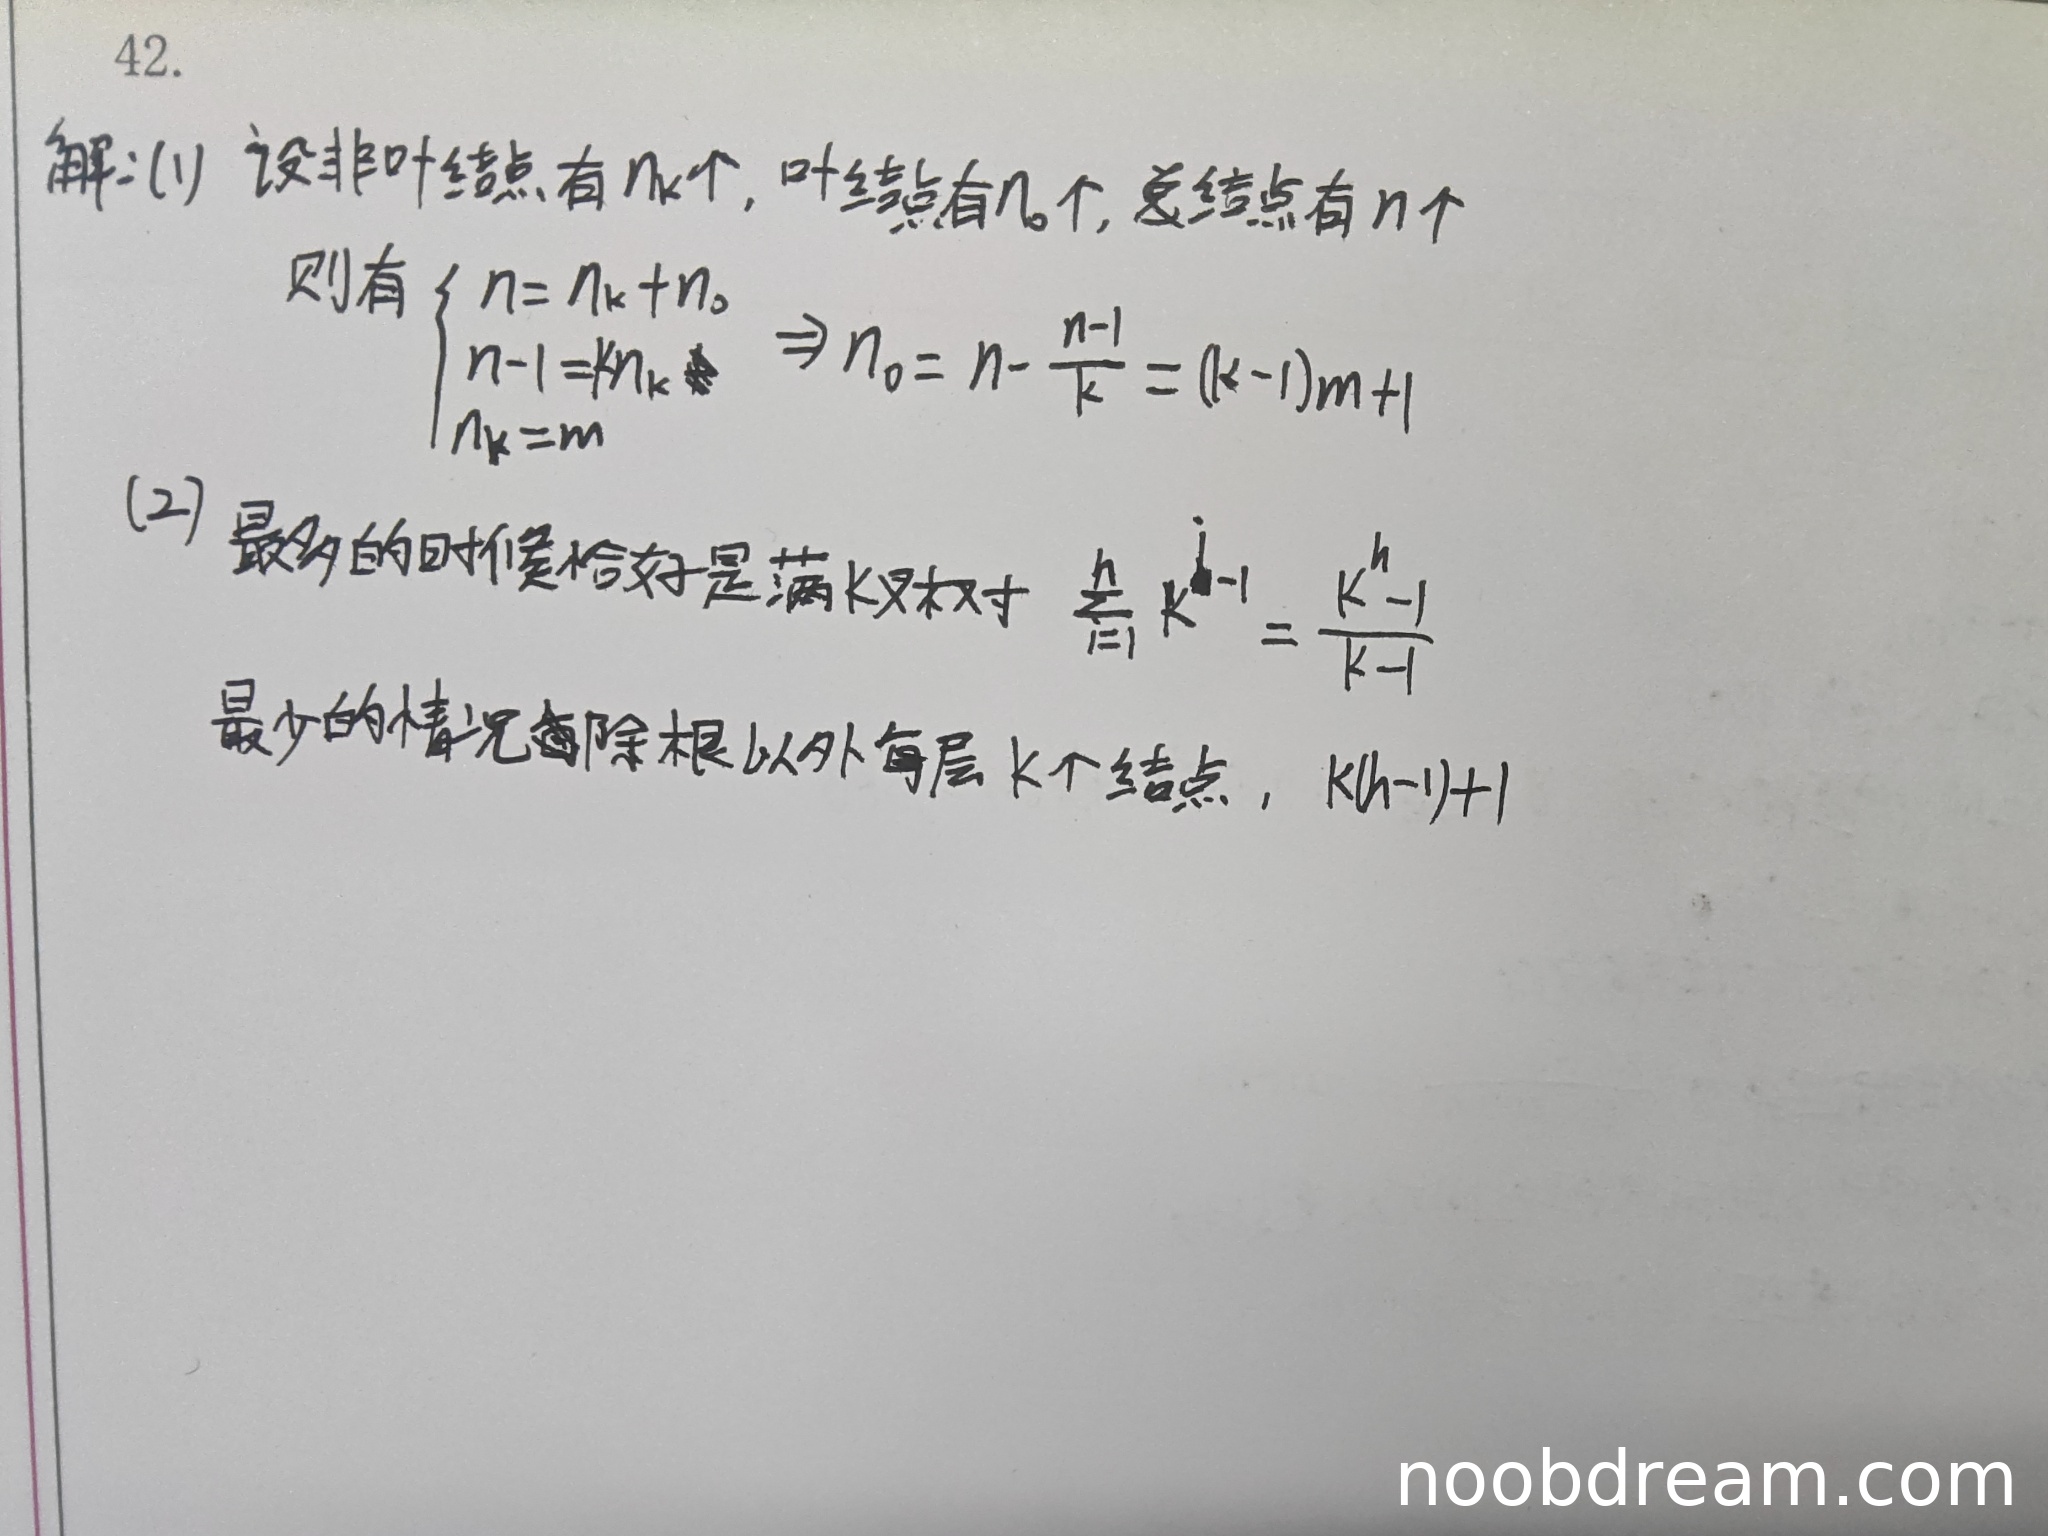 42.
解:(1) 设非叶结点有nₖ个, 叶结点有n₀个, 总结点有n个
则有 { n=nₖ+n₀
n-1=knₖ ⇒ n₀= n- (n-1)/k = (k-1)m+1
nₖ=m
(2) 最多的时候恰好是满k叉树 ∑ᵢ₌₁ʰ kⁱ⁻¹ = (kʰ-1)/(k-1)
最少的情况除根以外每层k个结点, k(h-1)+1
noobdream.com